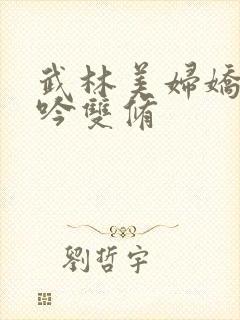 武林美婦嬌
吟雙脩
劉哲宇